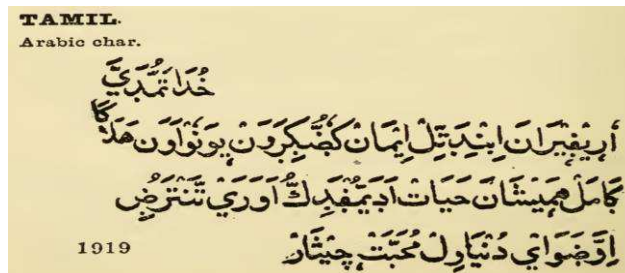 TAMIL.
Arabic char.
خُدَاتَمُّدَيَّ
أَرِيْفِيْرَانَ اِبْنِدَتِّلْ اِيْمَانْ كَضُّبِكِرَوَنْ يِوَنُوْاَوَنْ هَلَاكَا
كَامَلْ هَمَيْشَانَ حَيَاتْ اَدَيِمُّفَدِكُّ اَوَرَيْ تَنْتَرُضِ
اِوَّضَوَايْ دُنْيَاوِلْ مُحَبَّتْ چِيْثَارْ
1919